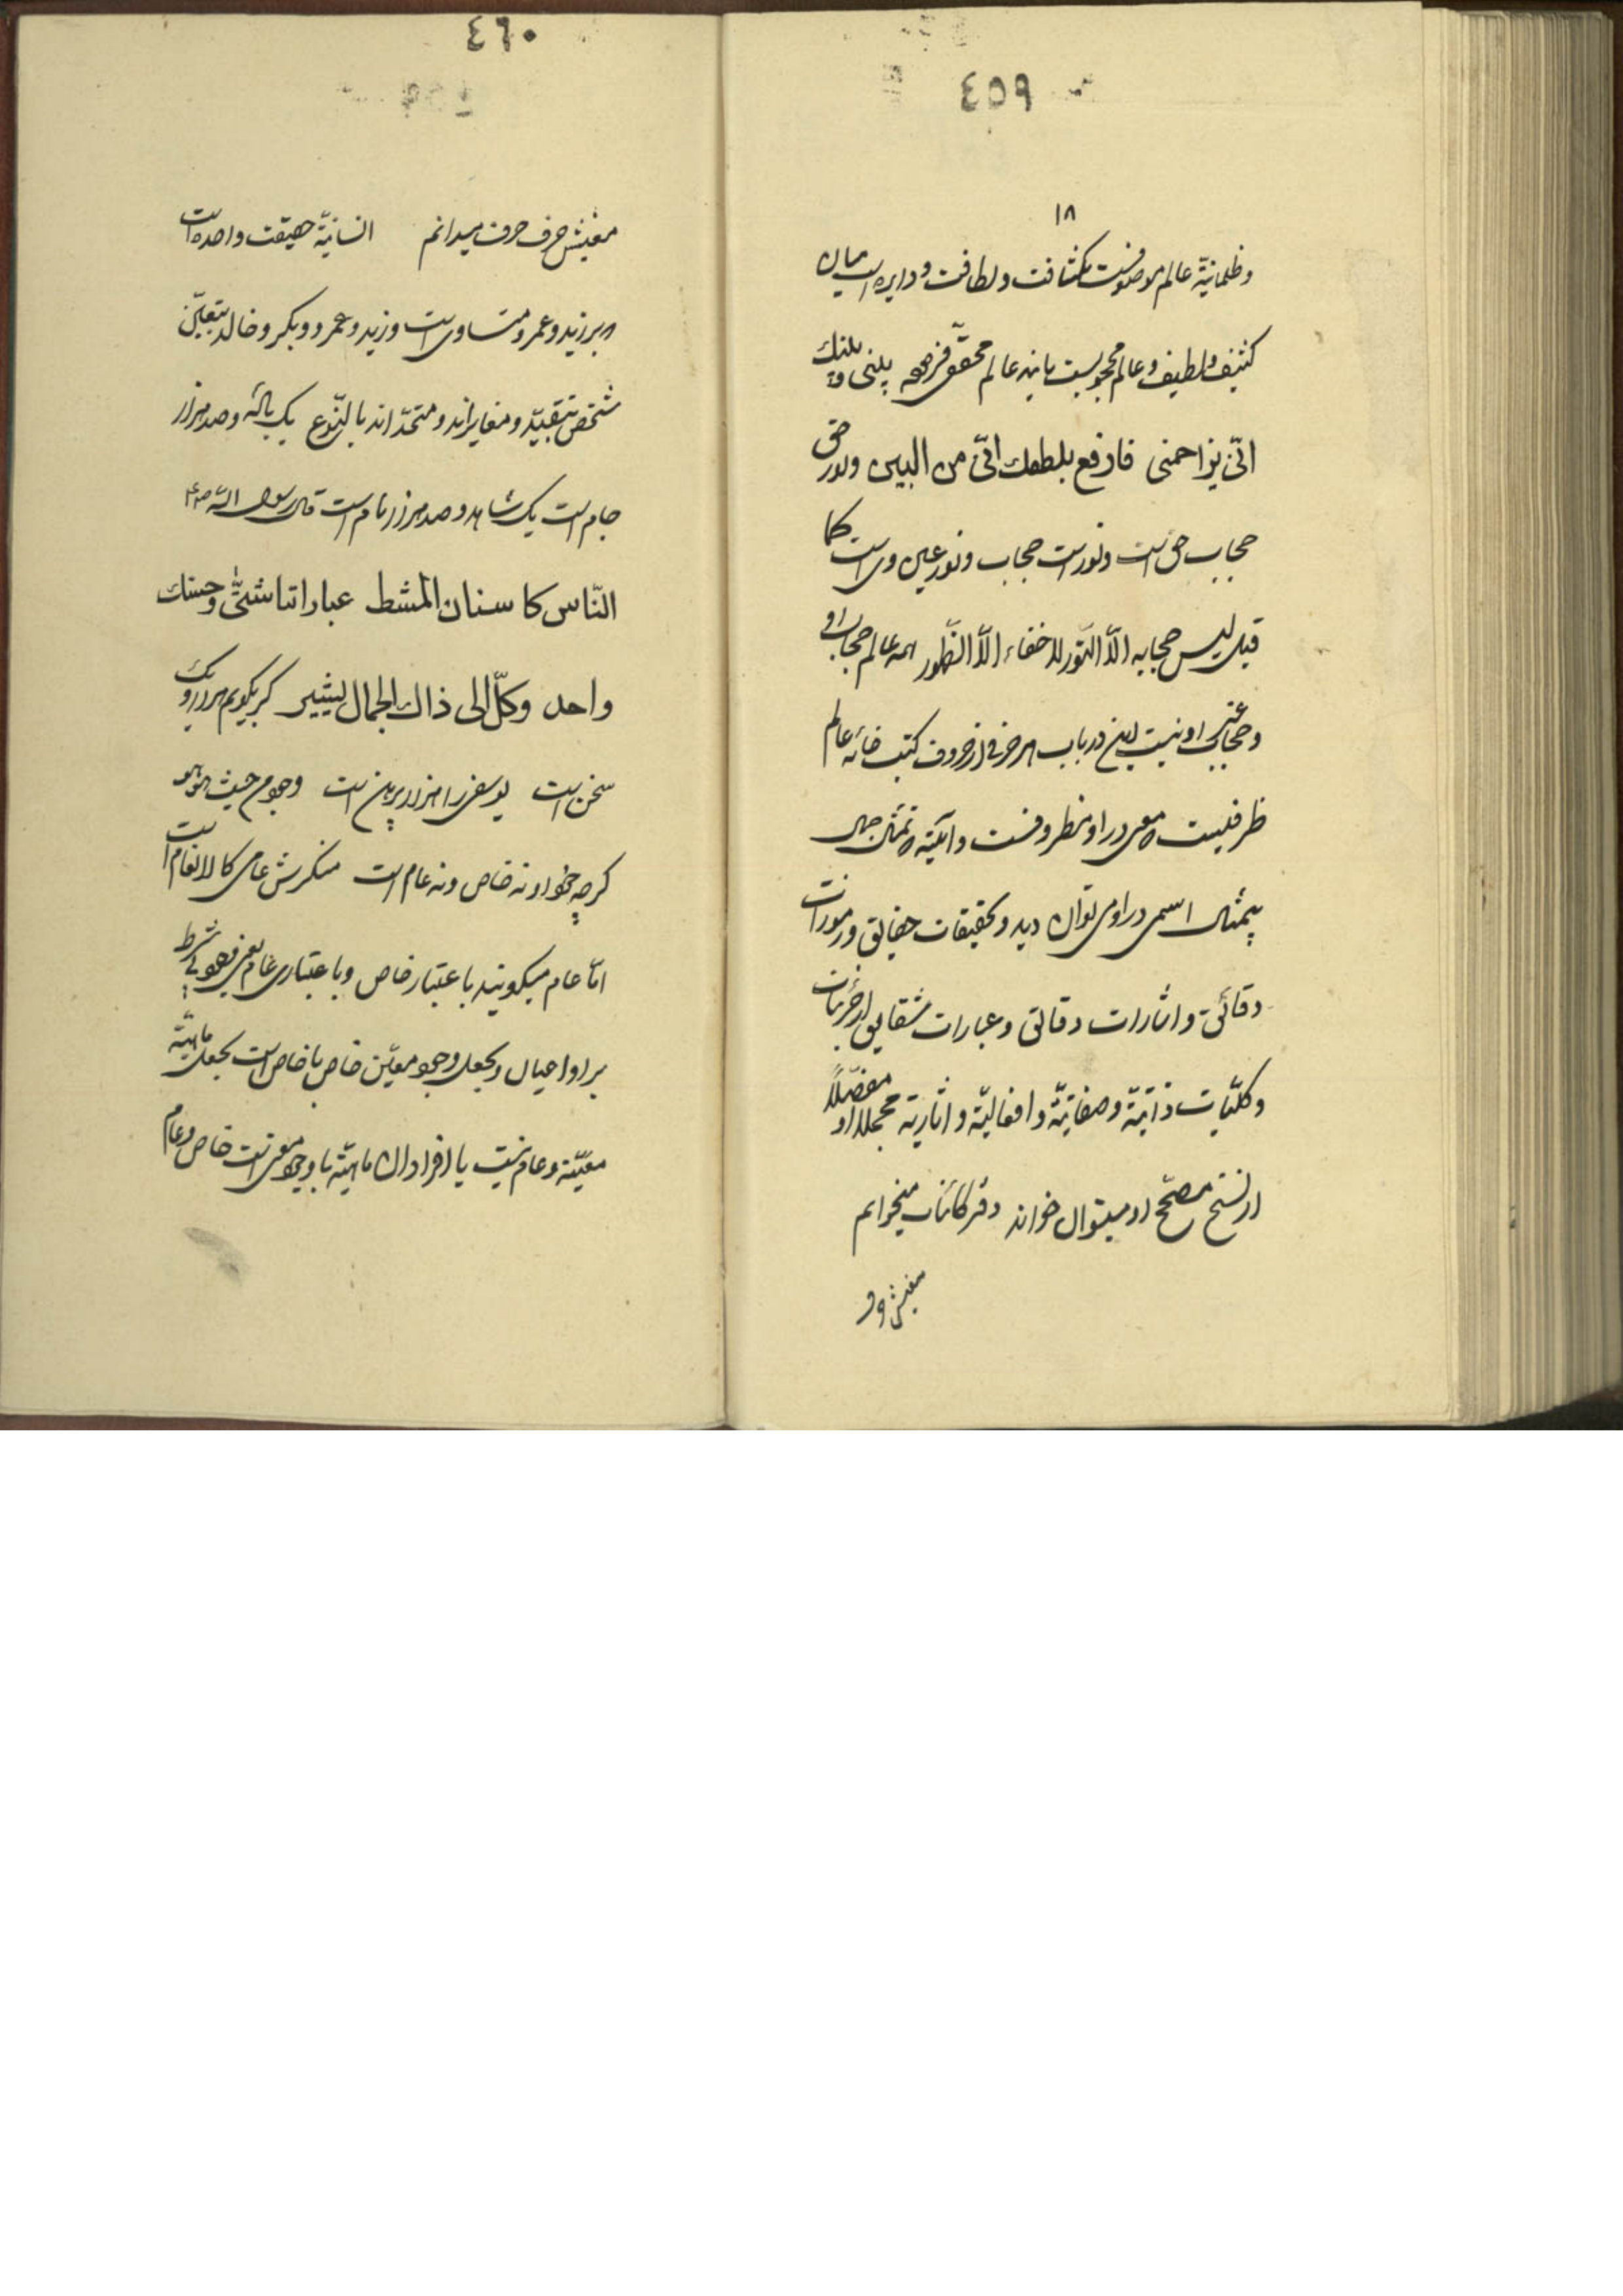 ٤٥٩
١٨
وظلمانیّة عالم موصوفست بکثافت ولطافت و دایر است میان
کثیف ولطیف وعالم محجوبست بانیه عالم محقق فرموده بینی وبینك
انّی یزاحمنی فارفع بلطفك انّی من البین ونور حق
حجاب حق است ونور است حجاب ونور عین وی است کما
قیل لیس حجابه الّا النّور لا خفاء الّا الظّهور همه عالم حجاب او
وحجابی او نیست در باب هر حرفی از حروف کتب خانه عالم
ظرفیست معنی در او مظروفست وآئینه تمثال
بیمثال اسمی در او می توان دید وتحقیقات حقایق ورموزات
دقائق واشارات دقائق وعبارات شقایق از جزئیات
وکلّیات ذاتیّة وصفاتیّة وافعالیّة واثاریّة مجملا او مفصّلاً
از نسخ مصحّح او میتوان خواند دفتر کائنات میخوانم
معنیش
٤٦٠
معنیش حرف حرف میدانم انسانیّة حقیقت واحده است
در زید وعمرو متساوی است وزید وعمرو وبکر وخالد بتعیّن
شخص بتقیید ومغایراند ومتحدّ اند بالنّوع یک باده وصد هزار
جام است یک شاهد وصد هزار نام است قال رسول الله صلعم
النّاس کاسنان المشط عباراتنا شتّی وحسنك
واحد وکلّ الی ذاك الجمال یشیر کر بکویم هزار ویک
سخن است یوسفی را هزار پیرهن است وجود من حیث هو هو
کرچه خود او نه خاص ونه عام است منکرش عامی کالانعام است
امّا عام میکویند باعتبار خاص وباعتباری عام یعنی
بر او اعیال وبجعل وجود معیّن خاص یا خاص است بجعل ماهیّة
معیّنة وعام نیست یا افراد ان ماهیّة یا وجود خاص وعام